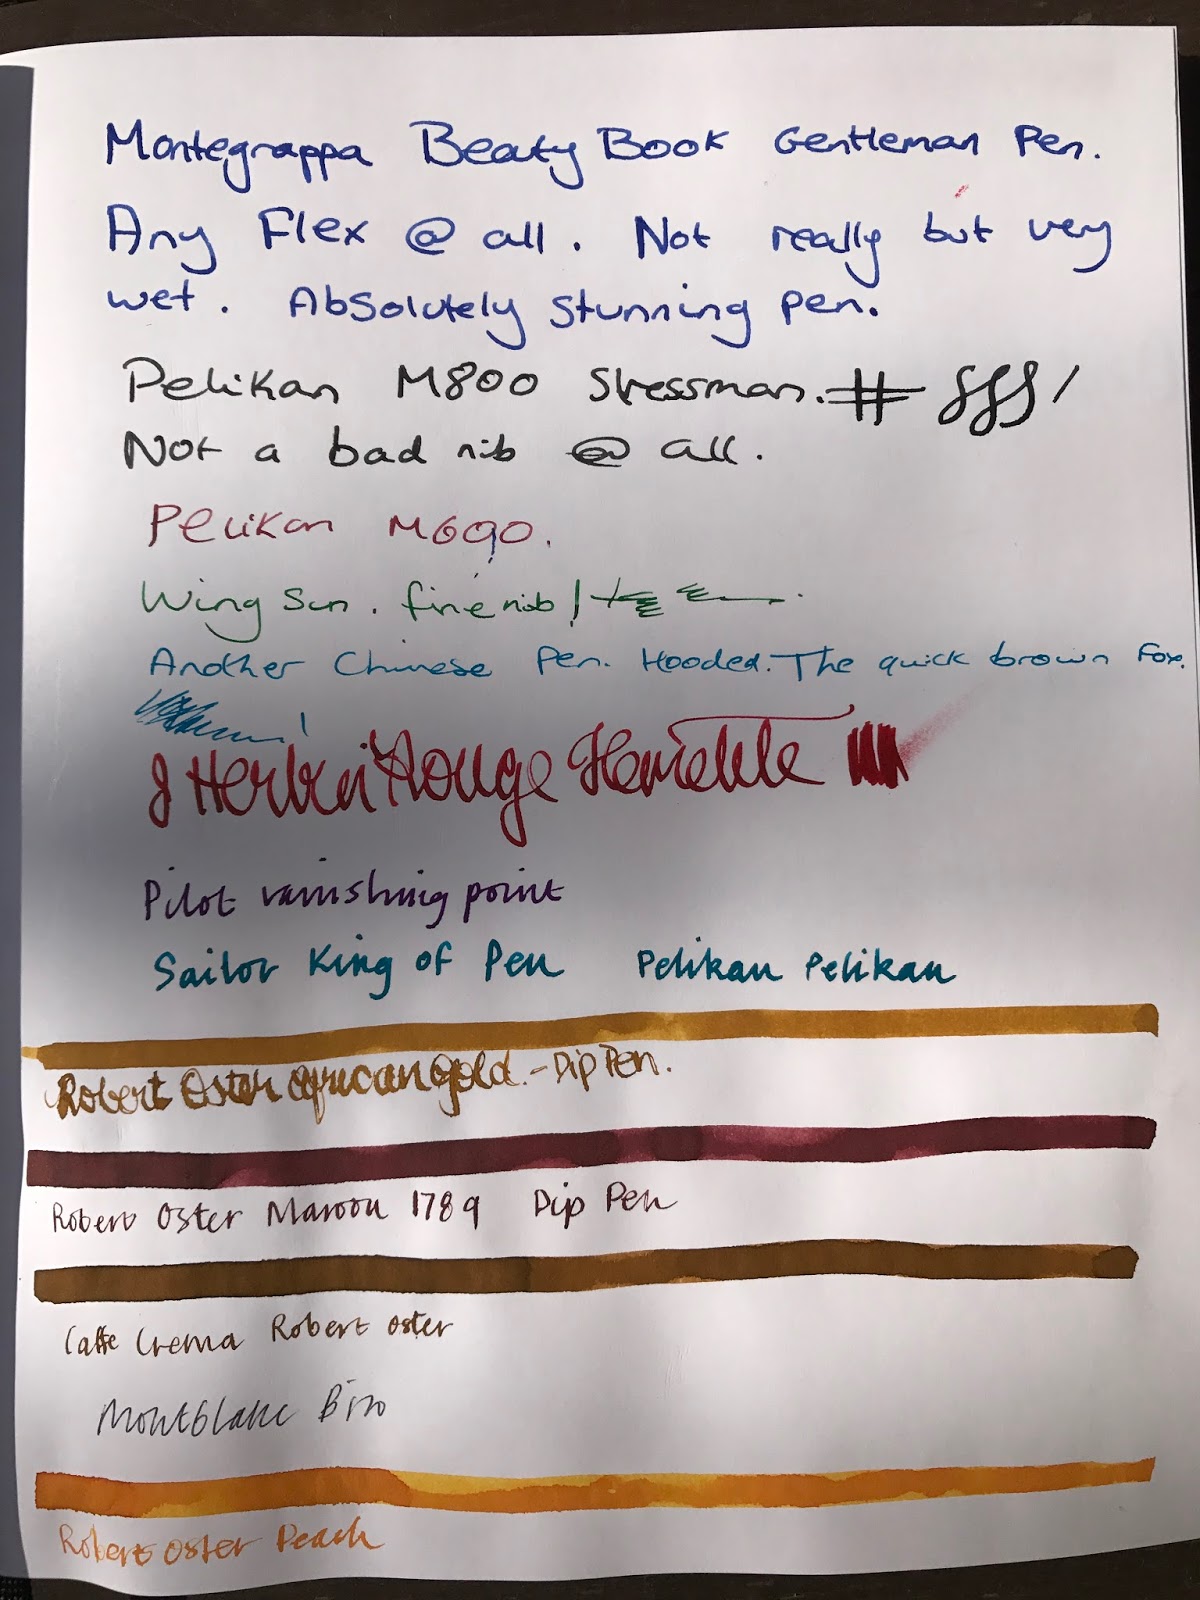 Montegrappa Beauty Book Gentleman Pen.
Any Flex @ all. Not really but very
wet. Absolutely stunning pen.
Pelikan M800 Stressman. # SSS /
Not a bad nib @ all.
Pelikan M600.
Wing Sun. fine nib!
Another Chinese Pen. Hooded. The quick brown Fox.
J Herbin Rouge Hematite
Pilot vanishing point
Sailor King of Pen Pelikan Pelikan
Robert Oster african gold. - Dip Pen.
Robert Oster Maroon 1789 Dip Pen
Caffe Crema Robert Oster
Montblanc Biro
Robert Oster Peach